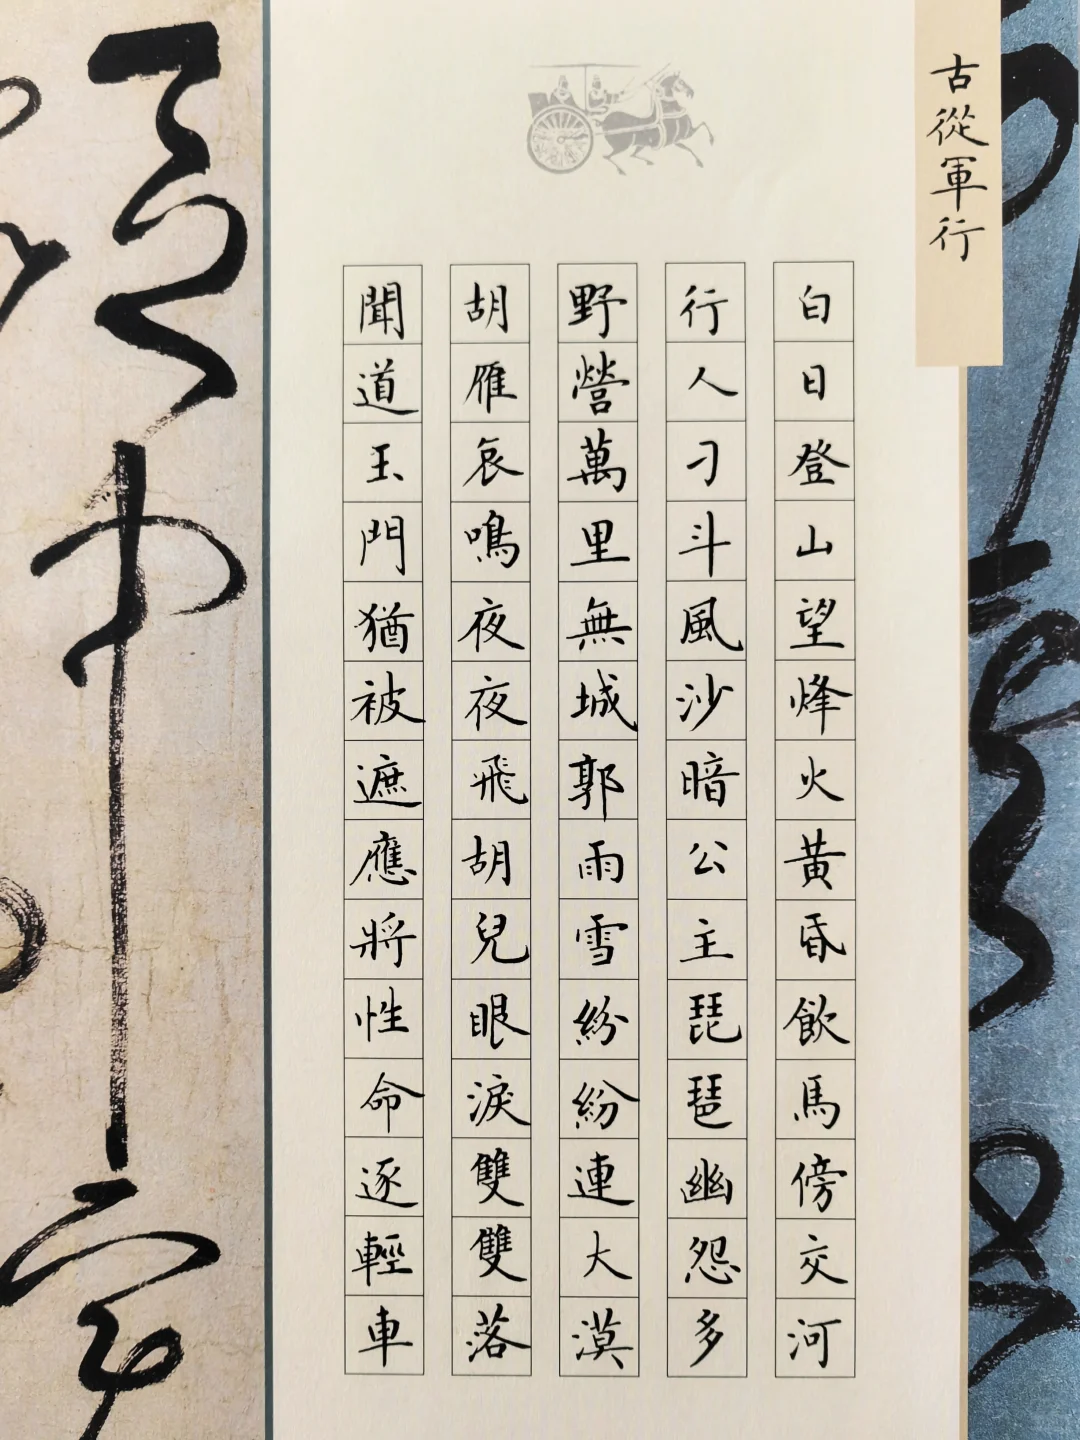 古從軍行
白日登山望烽火黄昏飲馬傍交河
行人刁斗風沙暗公主琵琶幽怨多
野營萬里無城郭雨雪紛紛連大漠
胡雁哀鳴夜夜飛胡兒眼淚雙雙落
聞道玉門猶被遮應將性命逐輕車